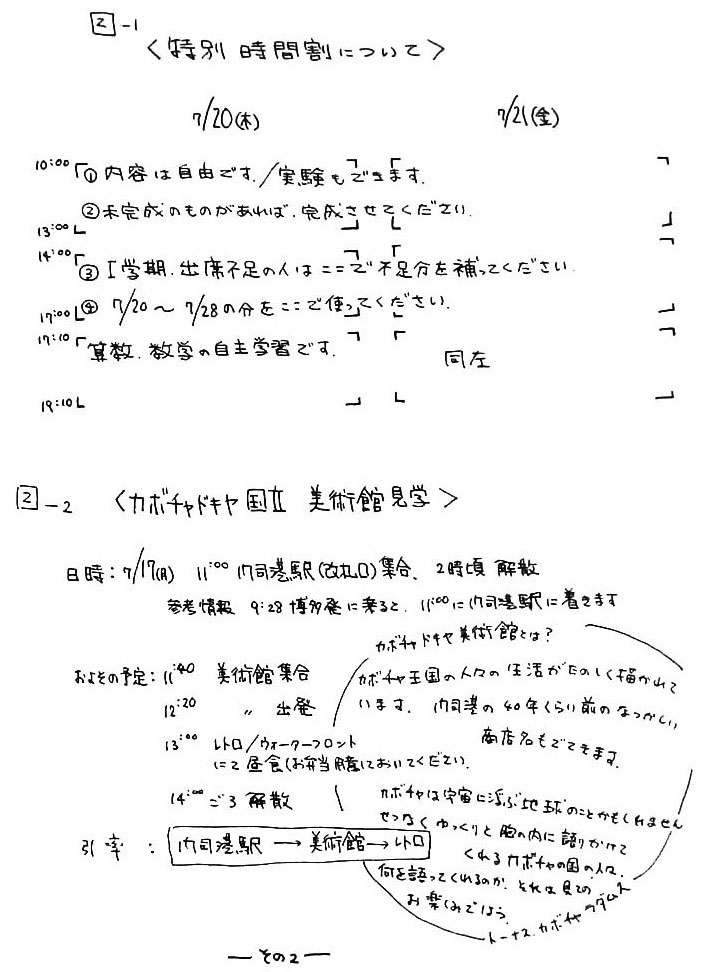 2-1
〈特別時間割について〉
7/20(木) 7/21(金)
10:00 ①内容は自由です./実験もできます.
②未完成のものがあれば.完成させてください.
13:00
14:00 ③Ⅰ学期.出席不足の人はここで不足分を補ってください.
17:00 ④ 7/20〜7/28の分をここで使ってください.
17:10 算数.数学の自主学習です. 同左
19:10
2-2 〈カボチャドキヤ国立 美術館見学〉
日時:7/17(月) 11:00 門司港駅(改札口)集合、2時頃 解散
参考情報 9:28博多発に乗ると、11:00に門司港駅に着きます
およその予定:11:40 美術館集合
12:20 〃 出発
13:00 レトロ/ウォーターフロント
にて昼食(お弁当用意しておいてください.
14:00ごろ 解散
引率:門司港駅→美術館→レトロ
カボチャドキヤ美術館とは?
カボチャ王国の人々の生活がたのしく描かれて
います. 門司港の40年くらい前のなつかしい
商店名もでてきます.
カボチャは宇宙に浮ぶ地球のことかもしれません
せつなくゆっくりと胸の内に語りかけて
くれるカボチャの国の人々.
何を語ってくれるのか.それは見ての
お楽しみでしょう.
トーナス.カボチャラダムス
―その2―